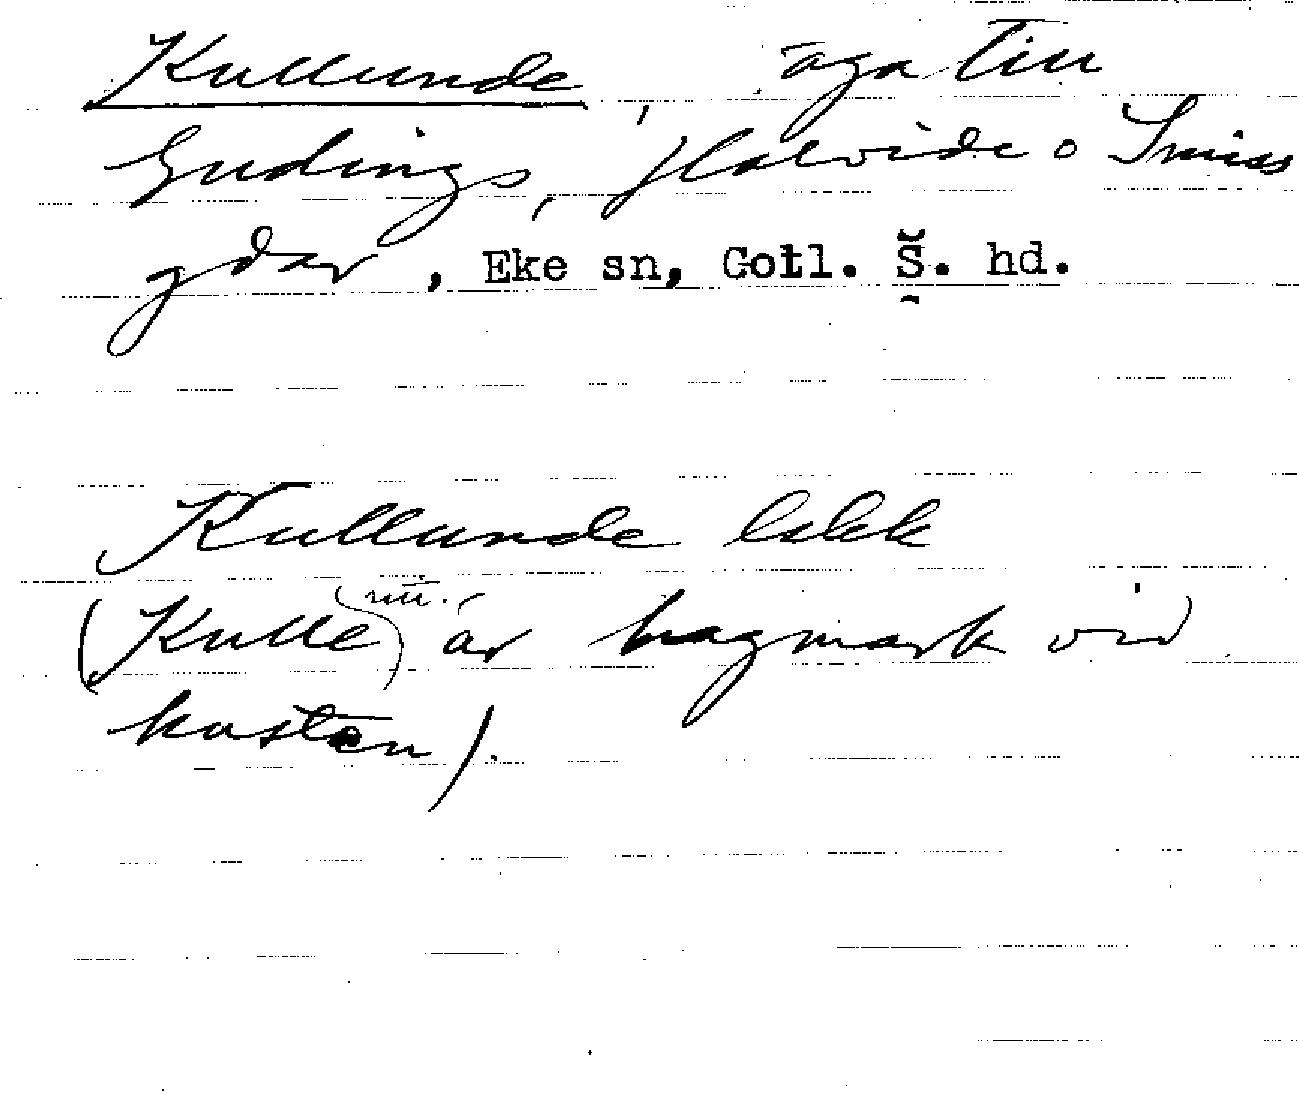 Kullunde, äga till
Gudings, Halvide o Smiss
gdar, Eke sn, Gotl. S. hd.
Kullunde
(Kulle) är hagmark vid
kusten).